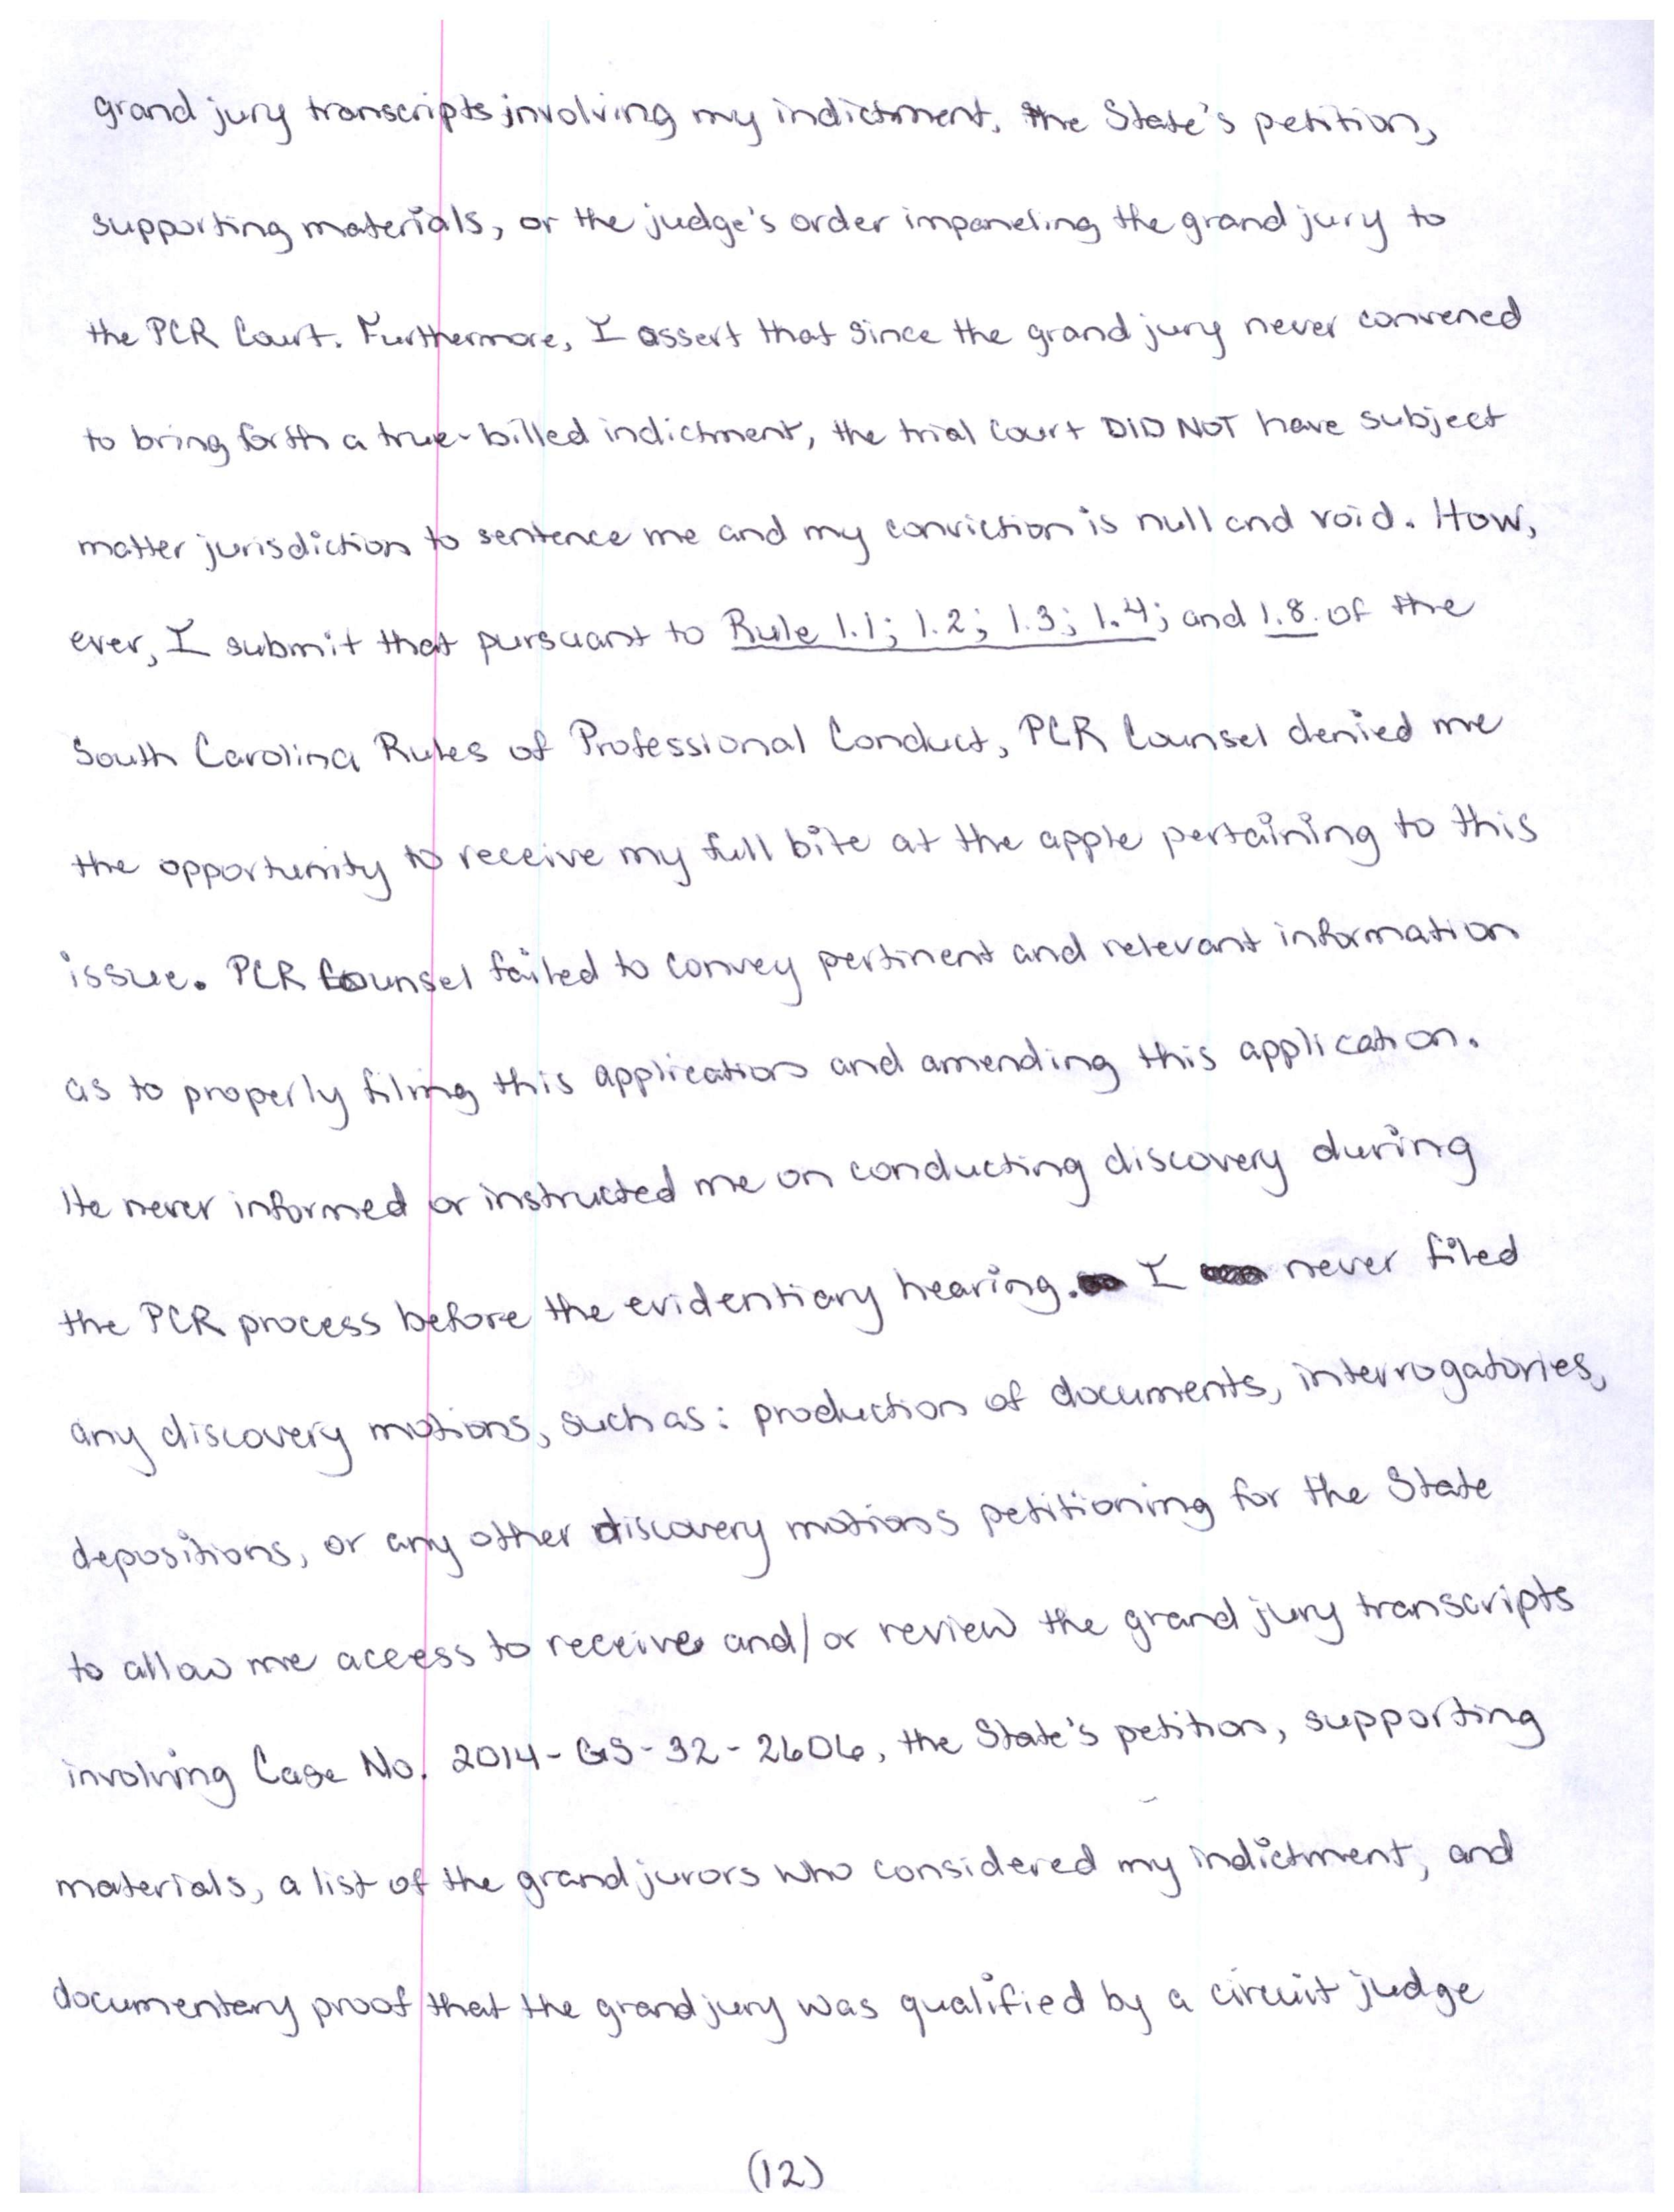 grand jury transcripts involving my indictment, the State's petition,
supporting materials, or the judge's order impaneling the grand jury to
the PCR Court. Furthermore, I assert that since the grand jury never convened
to bring forth a true-billed indictment, the trial court DID NOT have subject
matter jurisdiction to sentence me and my conviction is null and void. How,
ever, I submit that pursuant to Rule 1.1; 1.2; 1.3; 1.4; and 1.8. of the
South Carolina Rules of Professional Conduct, PCR Counsel denied me
the opportunity to receive my full bite at the apple pertaining to this
issue. PCR Counsel failed to convey pertinent and relevant information
as to properly filing this application and amending this application.
He never informed or instructed me on conducting discovery during
the PCR process before the evidentiary hearing. I never filed
any discovery motions, such as: production of documents, interrogatories,
depositions, or any other discovery motions petitioning for the State
to allow me access to receive and/or review the grand jury transcripts
involving Case No. 2014-GS-32-2606, the State's petition, supporting
materials, a list of the grand jurors who considered my indictment, and
documentary proof that the grand jury was qualified by a circuit judge
(12)